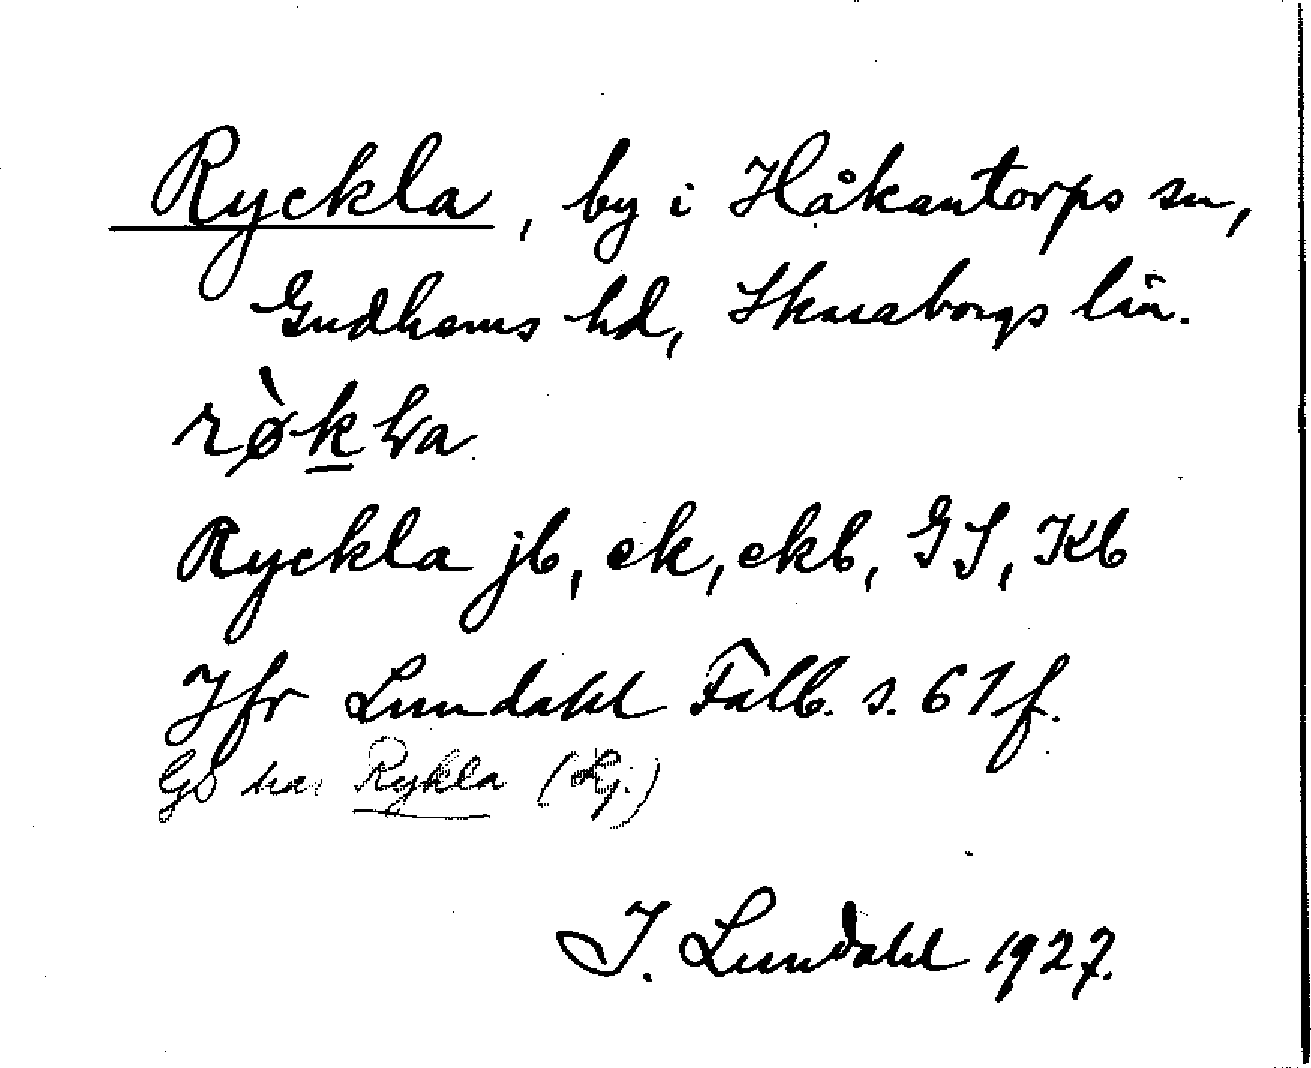 Ryckla, by i Håkantorps sn,
Gudhems hd, Skaraborgs län.
rø̀kla
Ryckla jb, ek, ekb, GS, Kb
Jfr Lundahl Falb. s. 61 f.
GS har Rykla (Lj.)
I. Lundahl 1927.